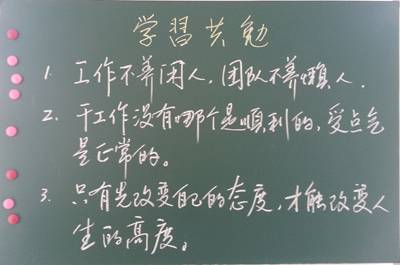 学習共勉
1. 工作不养闲人，团队不养懒人．
2. 干工作没有哪个是順利的，受点气
是正常的。
3. 只有先改变自己的态度，才能改变人
生的高度。